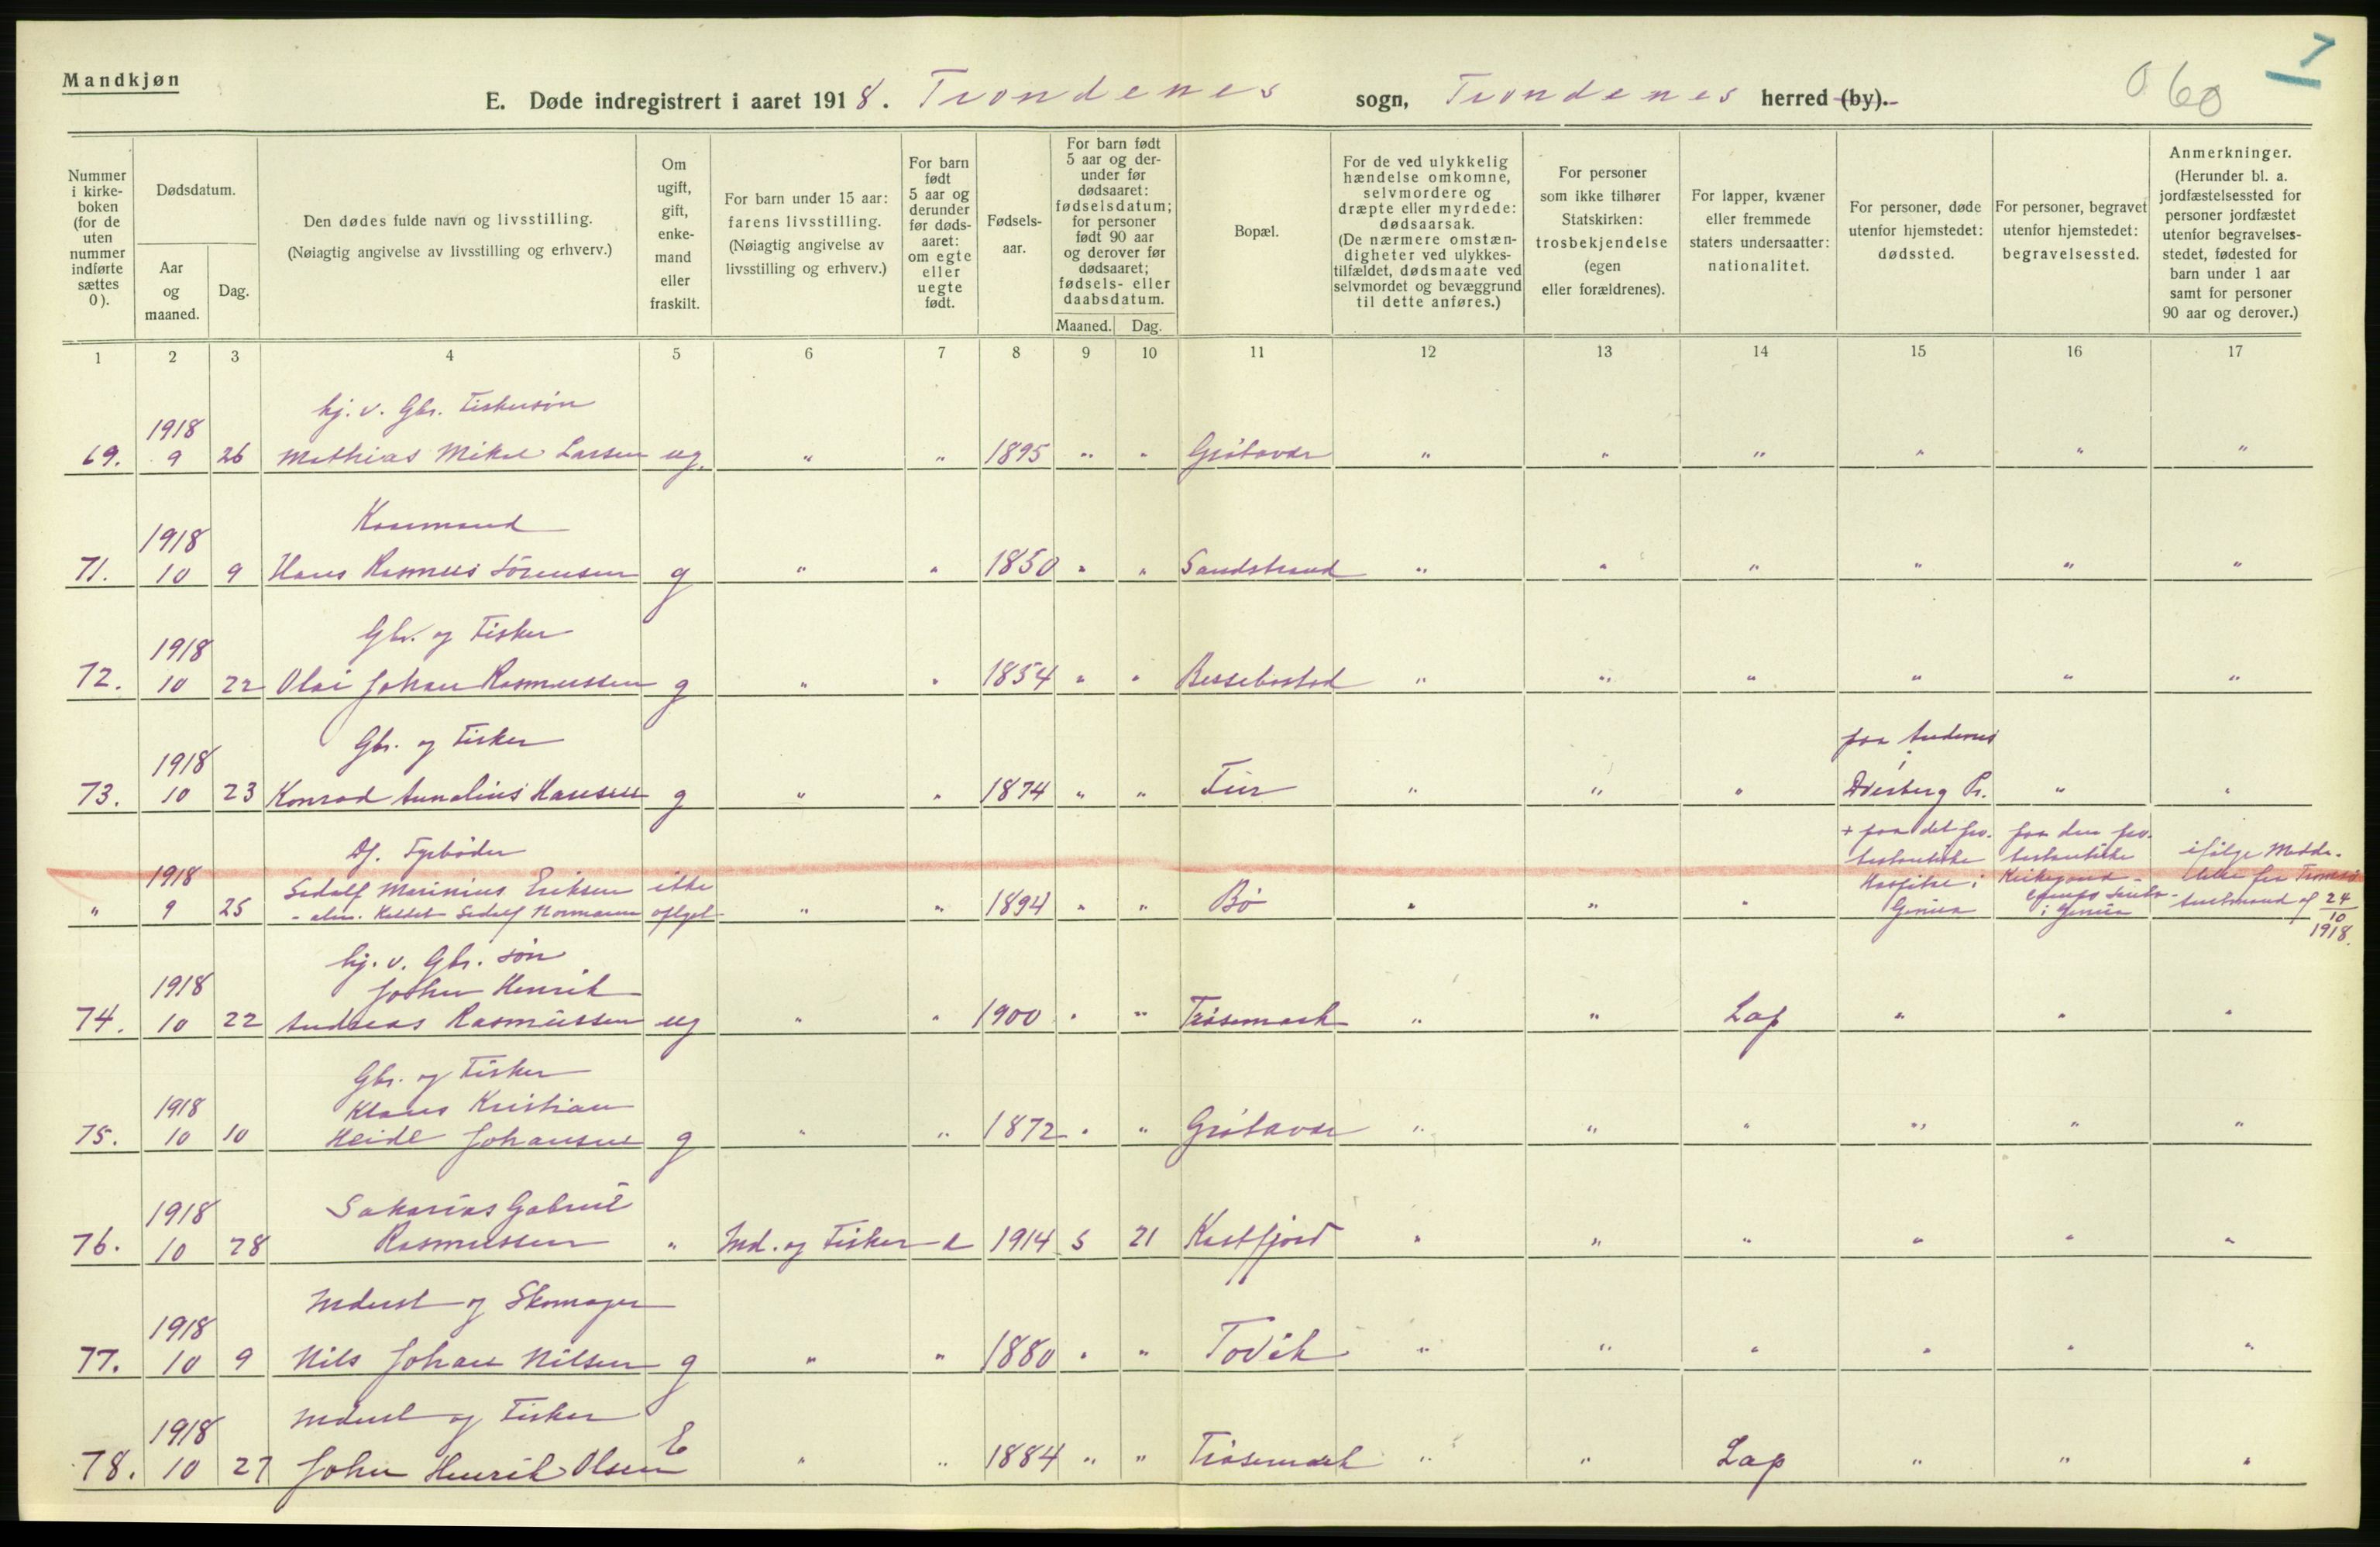 Mandkjøn
E. Døde indregistrert i aaret 1918. Trondenes sogn, Trondenes herred (by).
0 60
7
Nummer i kirkeboken (for de uten nummer indførte sættes 0).
Dødsdatum.
Aar og maaned.
Dag.
Den dødes fulde navn og livsstilling.
(Nøiagtig angivelse av livsstilling og erhverv.)
Om ugift, gift, enkemand eller fraskilt.
For barn under 15 aar: farens livsstilling. (Nøiagtig angivelse av livsstilling og erhverv.)
For barn født 5 aar og derunder før dødsaaret: om egte eller uegte født.
Fødselsaar.
For barn født 5 aar og derunder før dødsaaret: fødselsdatum; for personer født 90 aar og derover før dødsaaret; fødsels- eller daabsdatum.
Maaned. Dag.
Bopæl.
For de ved ulykkelig hændelse omkomne, selvmordere og dræpte eller myrdede: dødsaarsak. (De nærmere omstændigheter ved ulykkestilfældet, dødsmaate ved selvmordet og bevæggrund til dette anføres.)
For personer som ikke tilhører Statskirken: trosbekjendelse (egen eller forældrenes).
For lapper, kvæner eller fremmede staters undersaatter: nationalitet.
For personer, døde utenfor hjemstedet: dødssted.
For personer, begravet utenfor hjemstedet: begravelsessted.
Anmerkninger. (Herunder bl. a. jordfæstelsessted for personer jordfæstet utenfor begravelsesstedet, fødested for barn under 1 aar samt for personer 90 aar og derover.)
1 2 3 4 5 6 7 8 9 10 11 12 13 14 15 16 17
hj. v. Gbr. Fiskersøn
1918
69. 9 26 Mathias Mikal Larsen ug. " " 1895 " " Grøtavær " " " " " "
Kaarmand
1918
71. 10 9 Hans Rasmus Sörensen g " " 1850 " " Sandstrand " " " " " "
Gbr. og Fisker
1918
72. 10 22 Olai Johan Rasmussen g " " 1854 " " Bessebostad " " " " " "
Gbr. og Fisker paa Andenes i
1918
73. 10 23 Konrad Hansen g " " 1874 " " " " " Dverberg Pr. " "
Df. Fyrbøder
1918
Sedolf Marinius Eriksen ikke
" 9 25 - alm. kaldet Sedolf Normann opgit " " 1894 " " Bø " " "
+ paa det protestantiske Hospital i Genua
paa den protestantiske i Genua
ifølge Meddelelse fra Tromsø Amtmand af 24/10 1918.
hj. v. Gbr. søn
1918 Johan Henrik
74. 10 22 Andreas Rasmussen ug " " 1900 " " Trøsemark " " Lap " " "
Gbr. og Fisker
1918 Klaus Kristian
75. 10 10 Heidl Johansen g " " 1872 " " Grøtavær " " " " " "
1918 Sakarias Gabriel
76. 10 28 Rasmussen " Ind. og Fisker e 1914 5 21 Kastfjord " " " " " "
Inderst og Skomager
1918
77. 10 9 Nils Johan Nilsen g " " 1880 " " Tovik " " " " " "
Inderst og Fisker
1918
78. 10 27 Johan Henrik Olsen E " " 1884 " " Trøsemark " " Lap " " "